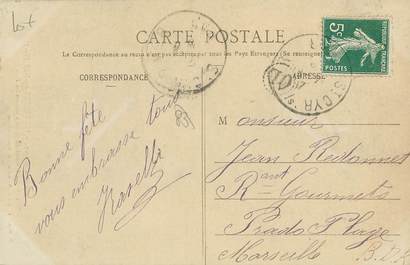 Lot
CARTE POSTALE
La Correspondance au recto n'est pas acceptée par tous les Pays Etrangers (Se renseigner
CORRESPONDANCE
ADRESSE
5c
ST CYR
Bonne fête
vous embrasse tous
M onsieur
Jean Redonnet
Rant Gourmets
Prado Plage
Marseille B.D.R